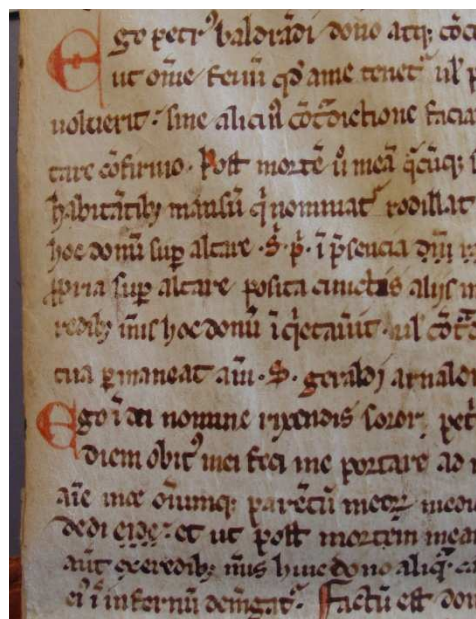 Ego petr᷒ baldrādi dono atq; cōc
ut om̄e feuū qd̄ a me tenet ul' p
uoluerit: sine alicui᷒ cōt̄dictione facia
tare cōfirmo. Post mortē ū meā q̄cūq; 
habitātib; mansū q̄ nominat᷒ rodillat
hoc donū sup altare. S. p̄. ī p̄sencia dn̄i
p̱pria sup altare posita cunctis alijs
redib; m̄is hoc donū ī q̄etauit. ul' cōt̄
tua ꝑmaneat am̄. S. geraldi arnald
Ego ī dei nomine rixendis soror petr
diem obit᷒ mei feci me portare ad
aīe mee om̄iumq; parētū meoꝝ medi
dedi et ut post mortem mea
aut ex eredib; m̄is huic dono aliq̄
ei᷒ ī infernū demgat᷒. Factū est don